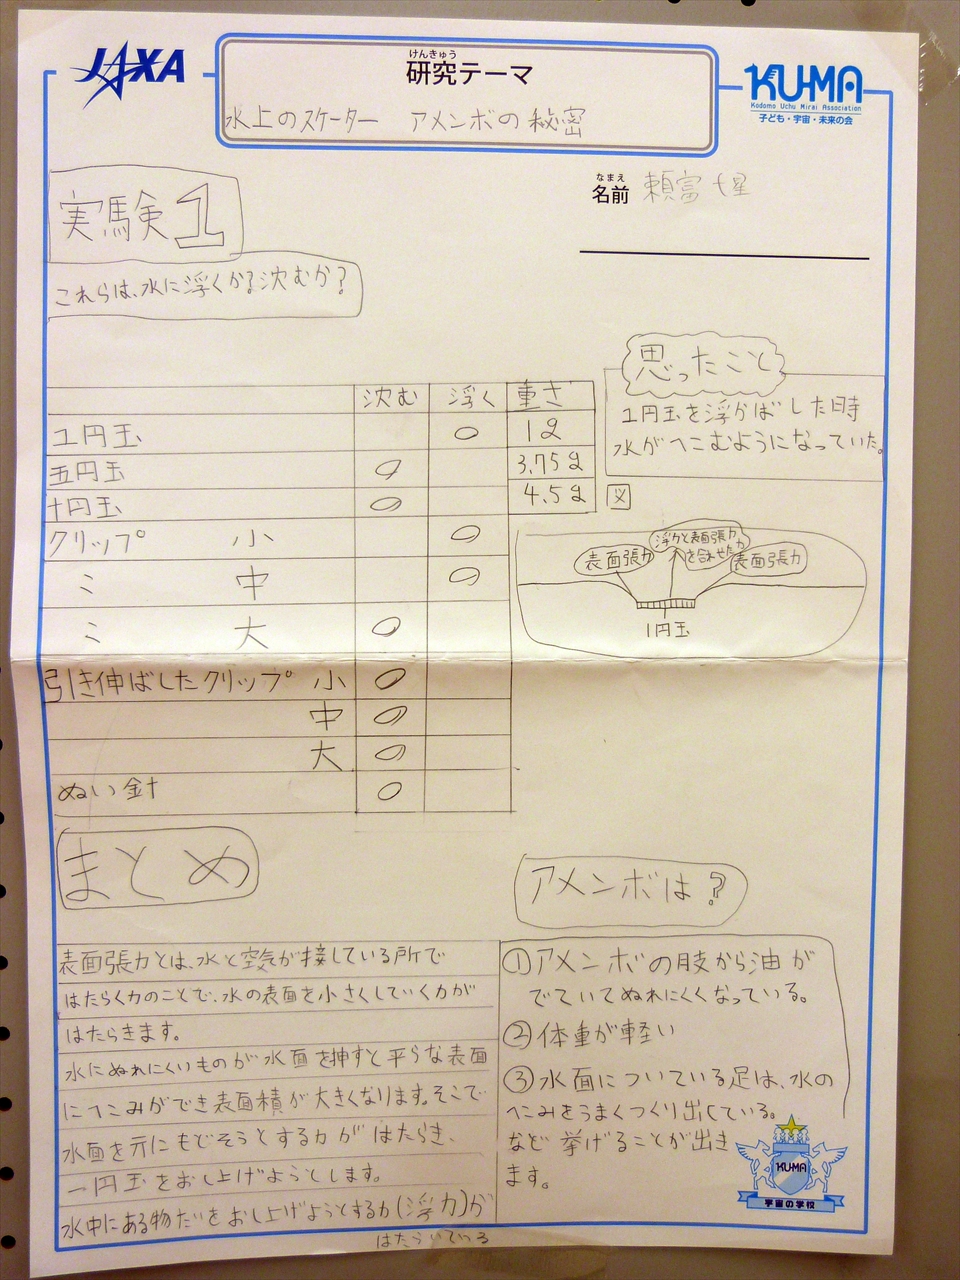 JAXA
けんきゅう
研究テーマ
水上のスケーター アメンボの秘密
KU-MA
Kodomo Uchu Mirai Association
子ども・宇宙・未来の会
なまえ
名前 頼富 七星
実験1
これらは、水に浮くか?沈むか?
沈む 浮く 重さ
1円玉 ○ 1g
五円玉 ○ 3,75g
十円玉 ○ 4.5g
クリップ 小 ○
ミ 中 ○
ミ 大 ○
引き伸ばしたクリップ 小 ○
中 ○
大 ○
ぬい針 ○
思ったこと
1円玉を浮かばした時
水がへこむようになっていた。
図
浮力と表面張力
を合わせた力
表面張力
表面張力
1円玉
まとめ
表面張力とは、水と空気が接している所で
はたらく力のことで、水の表面を小さくしていく力が
はたらきます。
水にぬれにくいものが水面を押すと平らな表面
にへこみができ表面積が大きくなります。そこで
水面を元にもどそうとする力がはたらき、
一円玉をおし上げようとします。
水中にある物だいをおし上げようとする力(浮力)が
はたらいている
アメンボは?
①アメンボの肢から油が
でていてぬれにくくなっている。
②体重が軽い
③水面についている足は、水の
へこみをうまくつくり出している。
など挙げることが出き
ます。
KU-MA
宇宙の学校